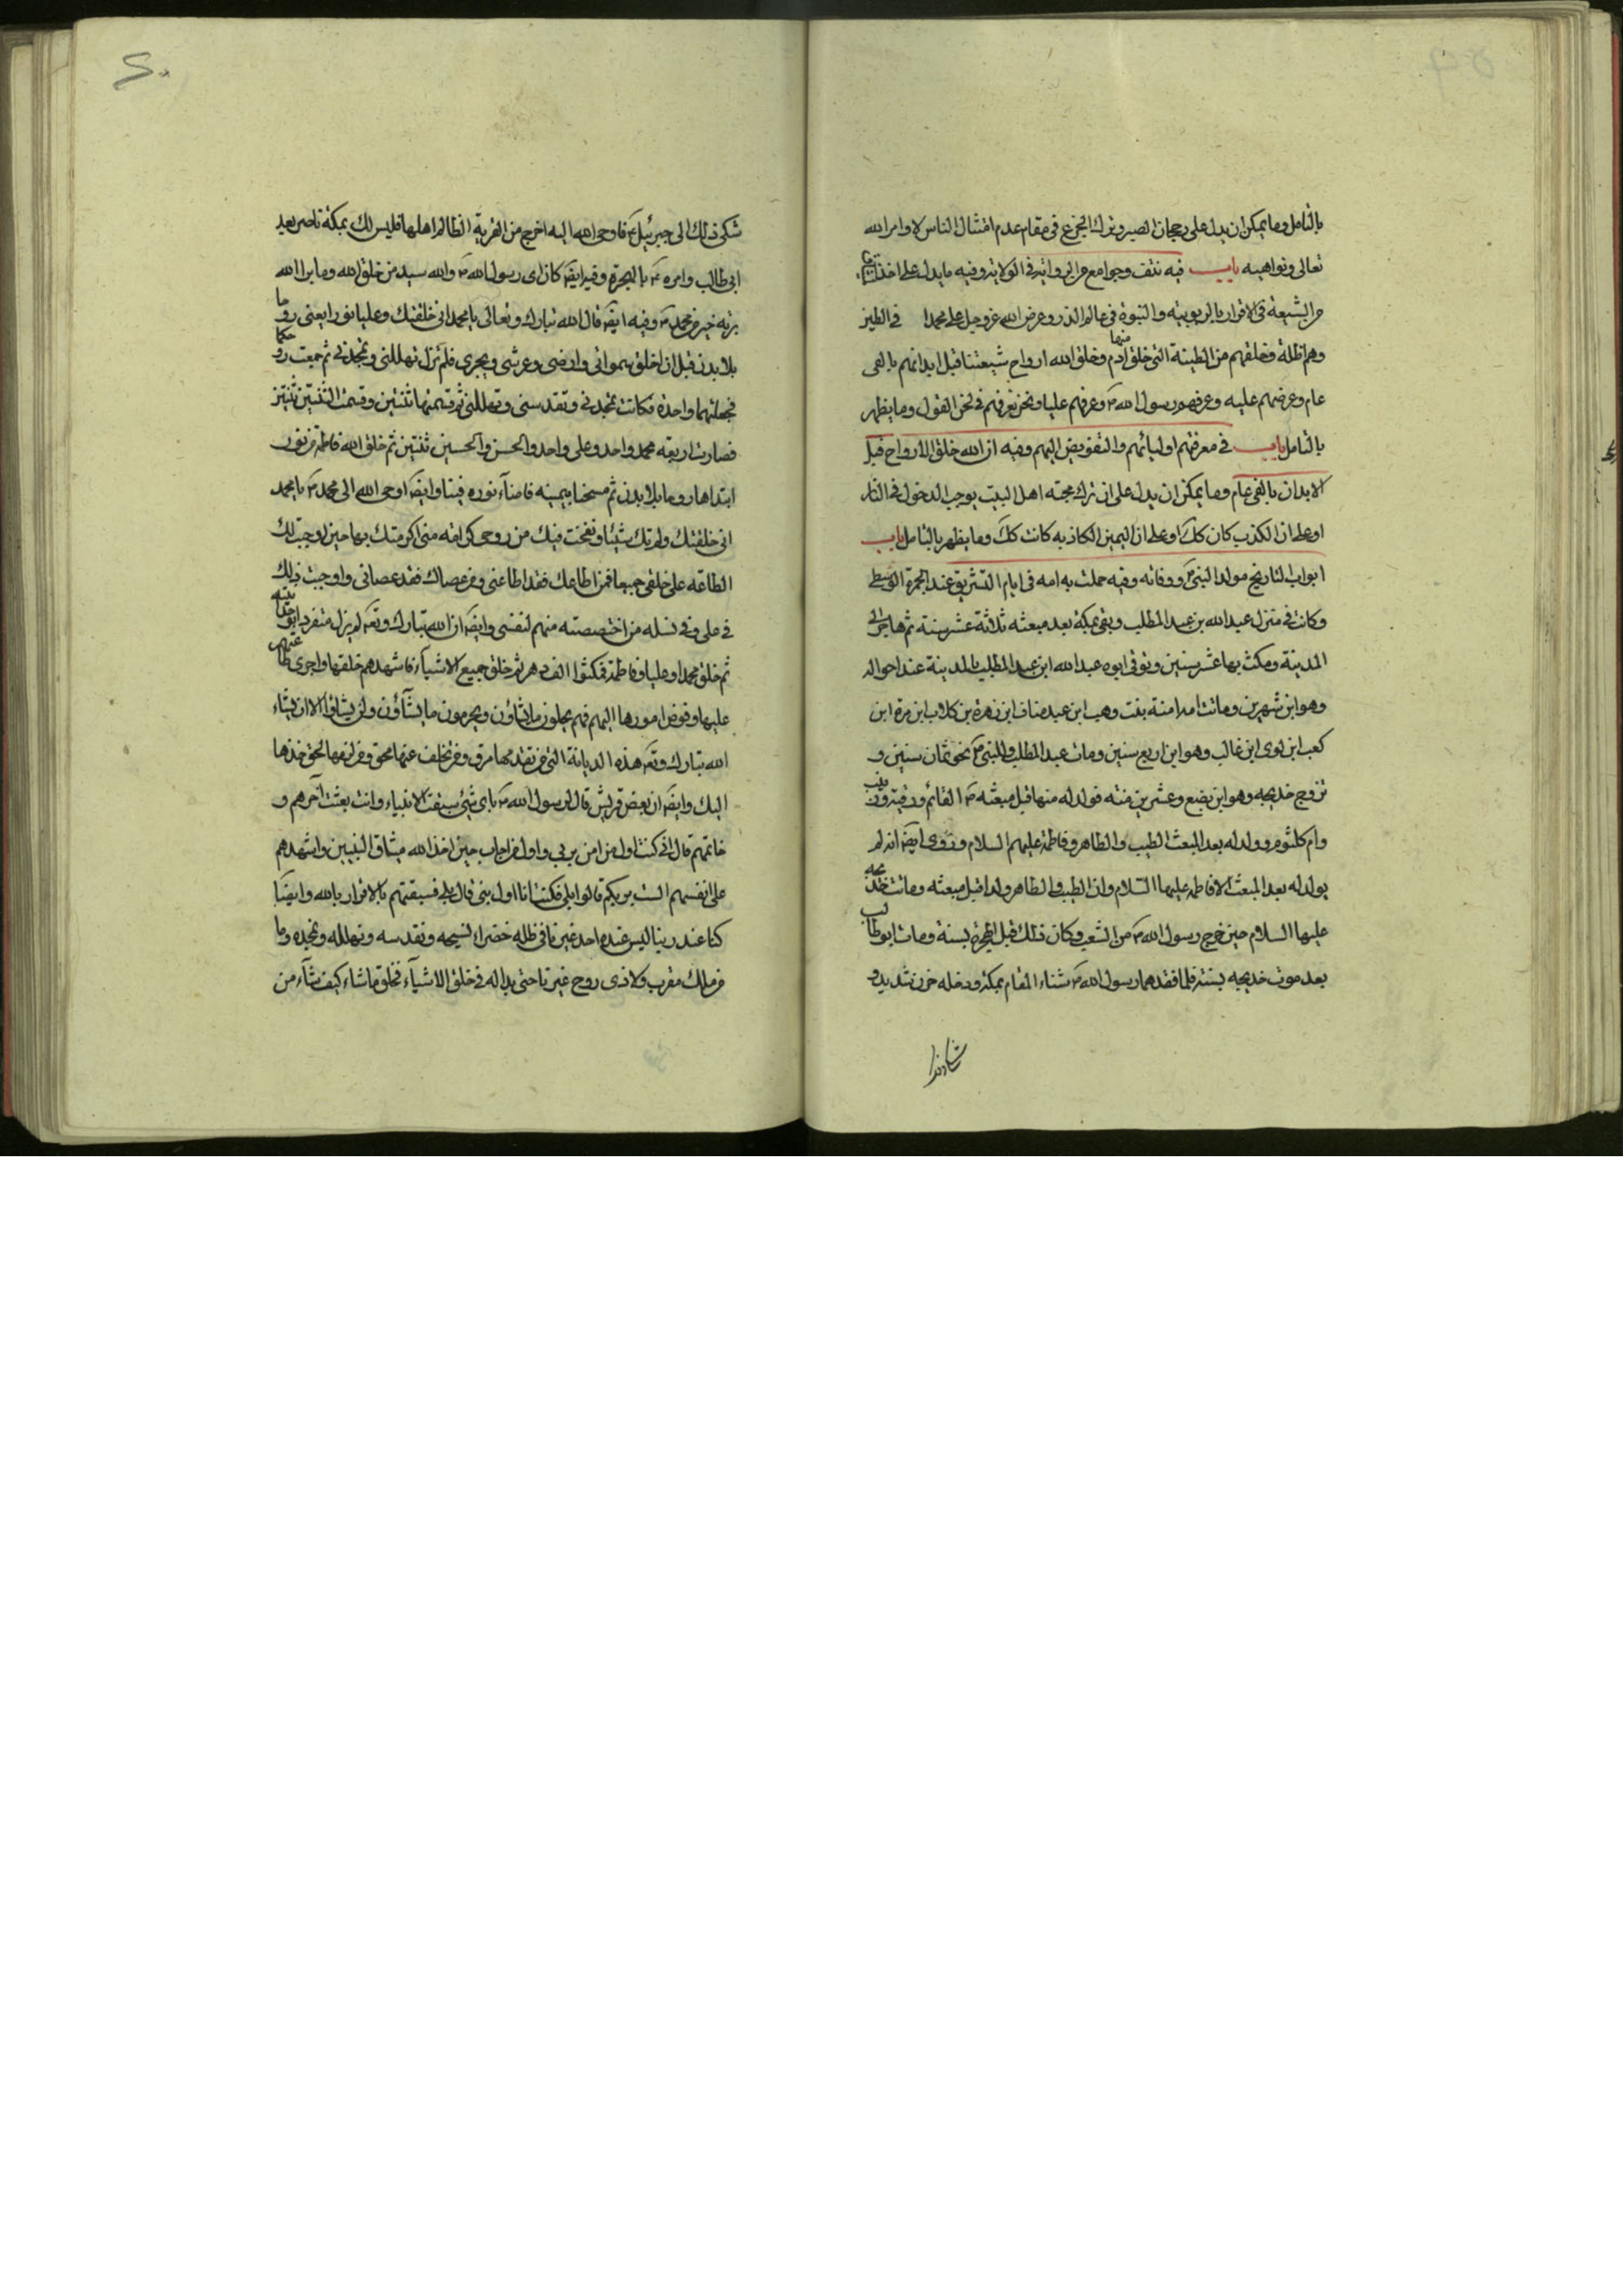 بالتامل وما يمكن ان يدل على رجحان الصبر وترك الجزع فى مقام عدم امتثال الناس لاوامر الله
تعالى ونواهيه باب فيه نتف وجوامع من الرواية فى الولاية وفيه ما يدل على اخذ الميثاق
من الشيعة فى الاقرار بالربوبية والنبوة فى عالم الذر وعرض الله عز وجل على محمد فى الطين
وهم اظلة وخلقهم من الطينة التى خلق منها ادم وخلق الله ارواح شيعتنا قبل ابدانهم بالفى
عام وعرضهم عليه وعرفهم رسول الله ص وعرفهم عليا ونحن نعرفهم فى لحن القول وما يظهر
بالتامل باب فى معرفتهم اوليائهم والتفويض اليهم وفيه ان الله خلق الارواح قبل
الابدان بالفى عام وما يمكن ان يدل على ان ترك محبة اهل البيت يوجب الدخول فى النار
او على ان الكذب كان كك او على ان اليمين الكاذبه كانت كك وما يظهر بالتامل باب
ابواب التاريخ مولد النبى ص ووفاته وفيه حملت به امه فى ايام التشريق عند الجمرة الوسطى
وكانت فى منزل عبد الله بن عبد المطلب وبقى بمكة بعد مبعثه ثلاثة عشر سنة ثم هاجر الى
المدينة ومكث بها عشر سنين وتوفى ابوه عبد الله ابن عبد المطلب بالمدينة عند اخواله
وهو ابن شهرين وماتت امه امنة بنت وهب ابن عبد مناف ابن زهرة بن كلاب ابن مرة ابن
كعب ابن لوى ابن غالب وهو ابن اربع سنين ومات عبد المطلب وللنبى ص نحو ثمان سنين و
تزوج خديجه وهو ابن بضع وعشرين سنة فولد له منها قبل مبعثه ص القائم ورقية وزينب
وام كلثوم وولد له بعد المبعث الطيب والطاهر وفاطمة عليهم السلام وروى ايضا انه لم
يولد له بعد المبعث الا فاطمه عليها السلام وان الطيب والطاهر ولدا قبل مبعثه وماتت خديجه
عليها السلام حين خرج رسول الله ص من الشعب وكان ذلك قبل الهجرة بسنة ومات ابو طالب
بعد موت خديجه بسنة فلما فقدهما رسول الله ص شناء المقام بمكة ودخله حزن شديد و
شكى ذلك الى جبرئيل ع فاوحى الله اليه اخرج من القرية الظالم اهلها فليس لك بمكة ناصر بعد
ابى طالب وامره ع بالهجرة وفيه ايضا كان اى رسول الله ص والله سيد من خلق الله وما برا الله
برية خير من محمد ص وفيه ايضا قال الله تبارك وتعالى يا محمد انى خلقتك وعليا نورا يعنى روحا
بلا بدن قبل ان اخلق سمواتى وارضى وعرشى وبحرى فلم تزل تهللنى وتمجدنى ثم جمعت روحكما
فجعلتهما واحدة فكانت تمجدنى وتقدسنى وتهللنى ثم قسمتها ثنتين وقسمت الثنتين ثنتين
فصارت اربعة محمد واحد وعلى واحد والحسن والحسين ثنتين ثم خلق الله فاطمة من نور
ابتداها روحا بلا بدن ثم مسحنا بيمينه فاضاء نوره فينا وايضا اوحى الله الى محمد ص يا محمد
انى خلقتك ولم تك شيئا ونفخت فيك من روحى كرامة منى اكرمتك بها حين اوجبت لك
الطاعة على خلقى جميعا فمن اطاعك فقد اطاعنى ومن عصاك فقد عصانى واوجبت ذلك
فى على وفى نسله من اختصصته منهم لنفسى وايضا ان الله تبارك وتعالى لم يزل متفردا بوحدانيته
ثم خلق محمدا وعليا وفاطمة فمكثوا الف دهر ثم خلق جميع الاشياء فاشهدهم خلقها واجرى طاعتهم
عليها وفوض امورها اليهم فهم يحلون ما يشاؤن ويحرمون ما يشاؤن ولن يشاؤا الا ان يشاء
الله تبارك وتعالى هذه الديانة التى من تقدمها مرق ومن تخلف عنها محق ومن لزمها لحق خذها
اليك وايضا ان بعض قريش قال لرسول الله ص باى شئ سبقت الانبياء وانت بعثت آخرهم و
خاتمهم قال انى كنت اول من امن بربى واول من اجاب حين اخذ الله ميثاق النبيين واشهدهم
على انفسهم الست بربكم قالوا بلى فكنت انا اول نبى قال بلى فسبقتهم بالاقرار بالله وايضا
كنا عند ربنا ليس عنده احد غيرنا فى ظله خضراء نسبحه ونقدسه ونهلله ونمجده وما
من ملك مقرب ولا ذى روح غيرنا حتى بدا له فى خلق الاشياء فخلق ما شاء كيف شاء من